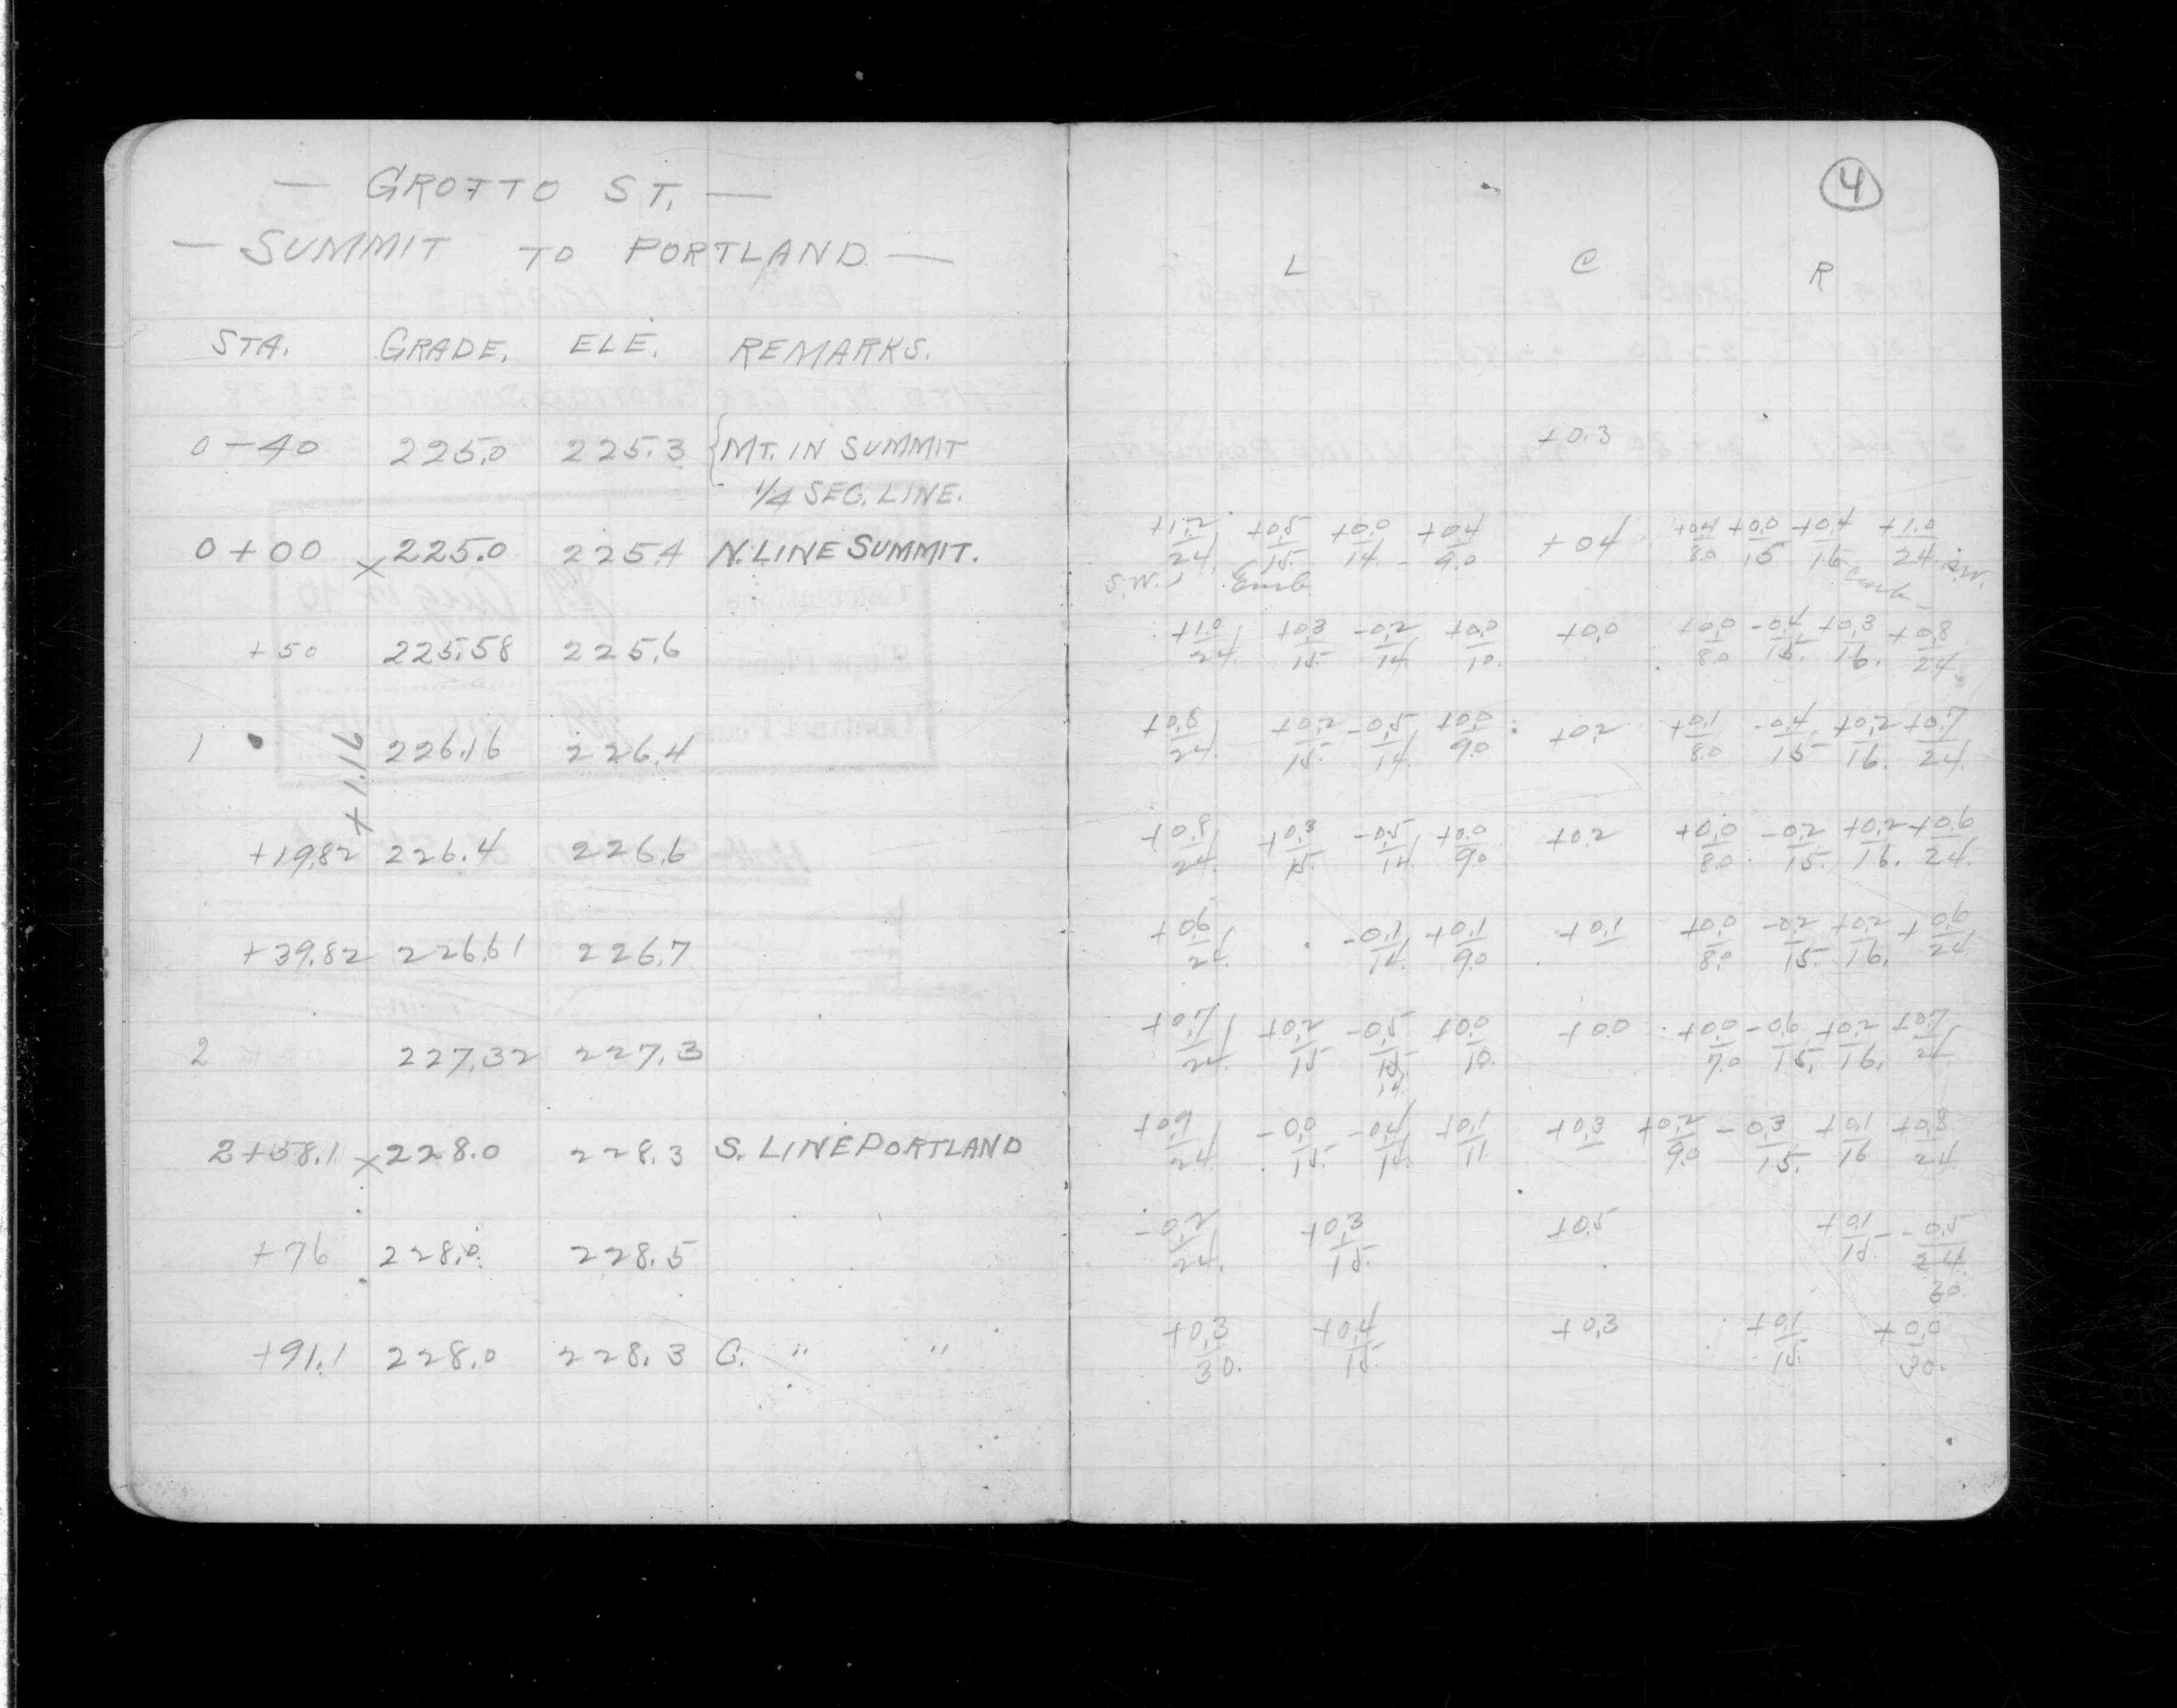 — GROTTO ST. —
— SUMMIT TO PORTLAND —
STA. GRADE. ELE. REMARKS.
0-40 225.0 225.3 {MT. IN SUMMIT
1/4 SEC. LINE.
0+00 x 225.0 225.4 N. LINE SUMMIT.
+50 225.58 225.6
1 226.16 226.4
+1.16
+19.82 226.4 226.6
+39.82 226.61 226.7
2 227.32 227.3
2+58.1 x 228.0 228.3 S. LINE PORTLAND
+76 228.0 228.5
+91.1 228.0 228.3 C. " "
4
L C R
+0.3
+1.2/24 +0.5/15 +0.0/14 +0.4/9.0 +04 +0.4/8.0 +0.0/15 +0.4/16 +1.0/24 S.W.
S.W. Curb Curb
+1.0/24 +0.3/15 -0.2/14 +0.0/10. +0.0 +0.0/8.0 -0.4/15. +0.3/16. +0.8/24
+0.8/24 +0.2/15 -0.5/14 +0.0/9.0 +0.2 +0.1/8.0 -0.4/15 +0.2/16. +0.7/24.
+0.8/24 +0.3/15. -0.5/14. +0.0/9.0 +0.2 +0.0/8.0 -0.2/15. +0.2/16. +0.6/24.
+0.6/24 -0.1/14. +0.1/9.0 +0.1 +0.0/8.0 -0.2/15 +0.2/16. +0.6/24
+0.7/24 +0.2/15 -0.5/14. +0.0/10. +0.0 +0.0/7.0 -0.6/15. +0.2/16. +0.7/24
+0.9/24 -0.0/15. -0.4/14. +0.1/11. +0.3 +0.2/9.0 -0.3/15. +0.1/16 +0.8/24.
-0.2/24. +0.3/15. +0.5 +0.1/15. -0.5/24
30.
+0.3/30. +0.4/15. +0.3 +0.1/15. +0.0/30.